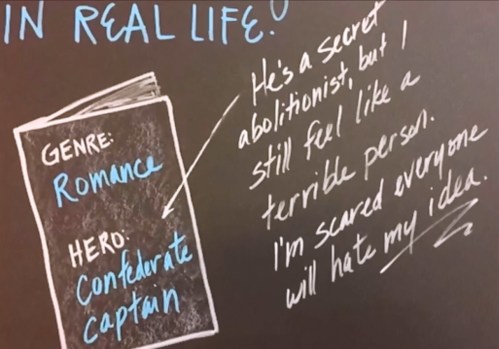 IN REAL LIFE!
GENRE:
Romance
HERO:
Confederate
captain
He's a secret
abolitionist, but I
still feel like a
terrible person.
I'm scared everyone
will hate my idea.